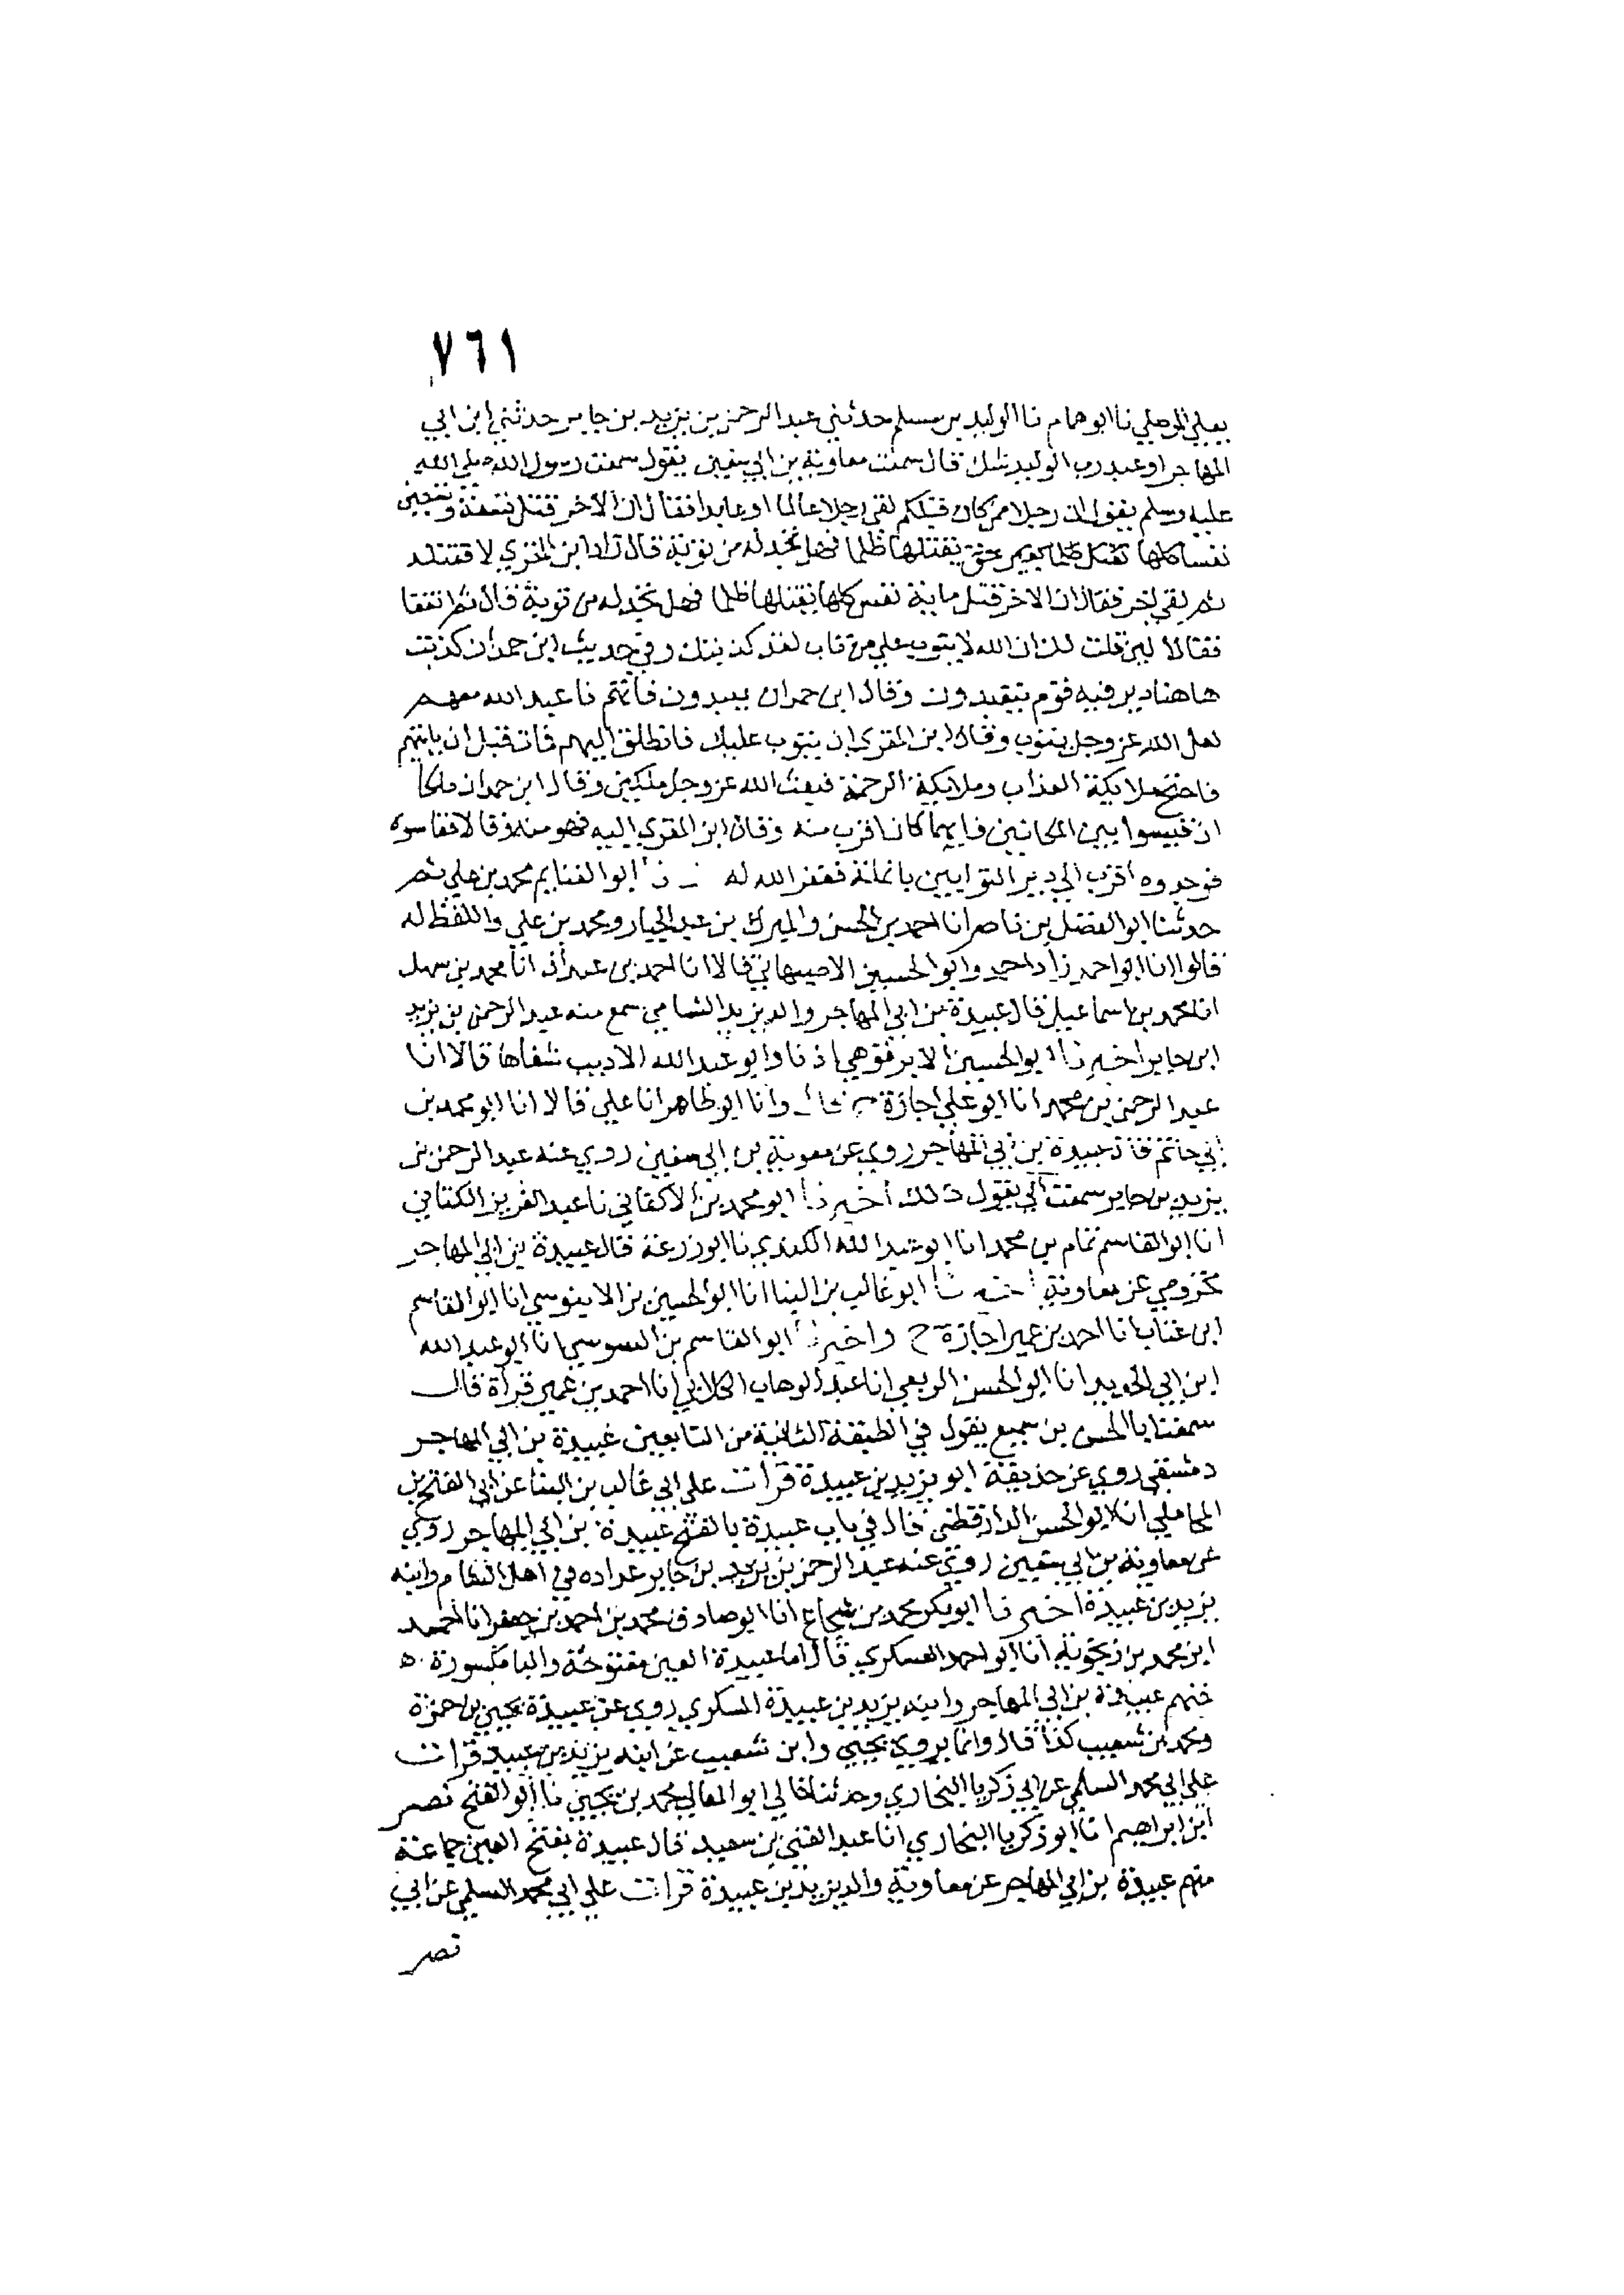 ٧٦١
يعلى الموصلي نا ابو همام نا الوليد بن مسلم حدثني عبد الرحمن بن يزيد بن جابر حدثني ابن ابي
المهاجر او عبد رب الوليد شك قال سمعت معاوية بن ابي سفين يقول سمعت رسول الله صلى الله
عليه وسلم يقول ان رجلا ممن كان قبلكم لقي رجلا عالما او عابدا فقال ان الاخر قتل تسعة وتسعين
نفسا كلها تقتل ظلما بغير حق يقتلها ظلما فهل تجد له من توبة قال زاد ابن المقري لا فقتله
ثم لقي اخر فقال ان الاخر قتل ماية نفس كلها يقتلها ظلما فهل تجد له من توبة قال ثم اتفقا
فقالا لين قلت لك ان الله لا يتوب على من تاب لقد كذبتك وفي حديث ابن حمدان كذبت
هاهنا دير فيه قوم يتعبدون وقال ابن حمدان يعبدون فاتهم فاعبد الله معهم
لعل الله عز وجل يتوب وقال ابن المقري ان يتوب عليك فانطلق اليهم فمات قبل ان ياتيهم
فاحتج ملايكة العذاب وملايكة الرحمة فبعث الله عز وجل ملكين وقال ابن حمدان ملكا
ان قيسوا بين المكانين فايهما كان اقرب منه وقال ابن المقري اليه فهو منه وقالا فقاسوه
فوجدوه اقرب الى دير التوابين بانملة فغفر الله له ابو الغنايم محمد بن علي ثم
حدثنا ابو الفضل بن ناصر انا احمد بن الحسن والمبرك بن عبد الجبار ومحمد بن علي واللفظ له
قالوا انا ابو احمد زاد احمد وابو الحسين الاصبهاني قالا انا احمد بن عبدان انا محمد بن سهل
انا محمد بن اسماعيل قال عبيدة بن ابي المهاجر والد يزيد الشامي سمع منه عبد الرحمن بن يزيد
ابن جابر اخبرنا ابو الحسين الابرقوهي اذنا وابو عبد الله الاديب شفاها قالا انا
عبد الرحمن بن محمد انا ابو علي اجازة ح قال وانا ابو طاهر انا علي قالا انا ابو محمد بن
ابي حاتم قال عبيدة بن ابي المهاجر روى عن معوية بن ابي سفين روى عنه عبد الرحمن بن
يزيد بن جابر سمعت ابي يقول ذلك اخبرنا ابو محمد بن الاكفاني نا عبد العزيز الكتاني
انا ابو القاسم تمام بن محمد انا ابو عبد الله الكندي نا ابو زرعة قال عبيدة بن ابي المهاجر
مخزومي عن معاوية اخبرنا ابو غالب بن البنا انا ابو الحسين بن الابنوسي انا ابو القاسم
ابن عتاب انا احمد بن عمير اجازة ح واخبرنا ابو القاسم بن السوسي انا ابو عبد الله
ابن ابي الحديد انا ابو الحسن الربعي انا عبد الوهاب الكلابي انا احمد بن عمير قراة قال
سمعت ابا الحسن بن سميع يقول في الطبقة الثانية من التابعين عبيدة بن ابي المهاجر
دمشقي روى عن حذيفة ابو يزيد بن عبيدة قرات على ابي غالب بن البنا عن ابي الفتح بن
المحاملي انا ابو الحسن الدارقطني قال في باب عبيدة بالفتح عبيدة بن ابي المهاجر روى
عن معاوية بن ابي سفيين روى عنه عبد الرحمن بن يزيد بن جابر عداده في اهل الشام وابنه
يزيد بن عبيدة اخبرنا ابو بكر محمد بن شجاع انا ابو صادق محمد بن احمد بن جعفر انا احمد
ابن محمد بن زنجوية انا ابو احمد العسكري قال اما عبيدة العين مفتوحة والبا مكسورة ه
فمنهم عبيدة بن ابي المهاجر وابنه يزيد بن عبيدة السكري روى عن عبيدة يحيى بن حمزة
ومحمد بن شعيب كذا قال وانما يروي يحيى وابن شعيب عن ابنه يزيد بن عبيد قرات
على ابي محمد السلمي عن ابي زكريا البخاري وحدثنا خالي ابو المعالي محمد بن يحيى نا ابو الفتح نصر
ابن ابراهيم انا ابو زكريا البخاري انا عبد الغني بن سعيد قال عبيدة بفتح العين جماعة
منهم عبيدة بن ابي المهاجر عن معاوية والد يزيد بن عبيدة قرات على ابي محمد السلمي عن ابي
نصر